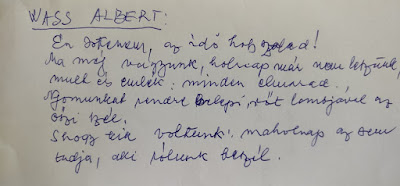 WASS ALBERT:
Én Istenem, az idő hogy szalad!
Ma még vagyunk, holnap már nem leszünk,
mult és emlék: minden elmarad..,
Nyomunkat rendre belepi, rőt lombjával az
őszi szél.
S hogy kik voltunk: maholnap az sem
tudja, aki rólunk beszél.